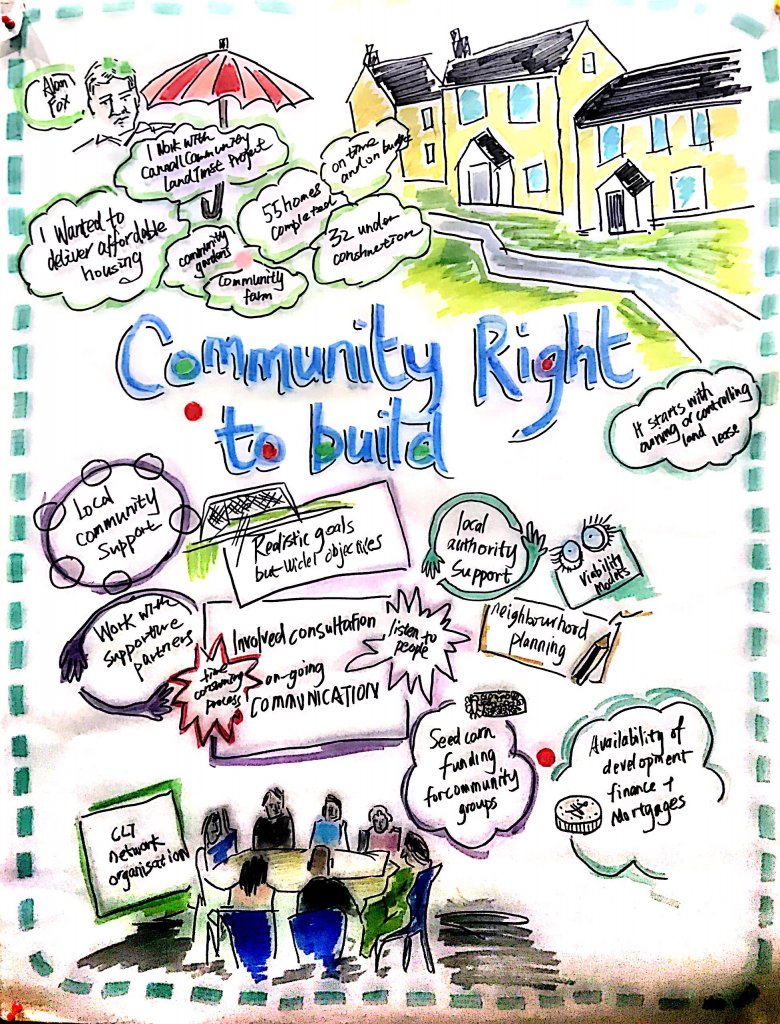 Alan
Fox
I Work with
Community
Land Trust Project
on time
and on budget
55 homes
completed
32 under
construction
I Wanted to
deliver affordable
housing
community
gardens
Community
farm
Community Right
to build
It starts with
owning or controlling
land lease
Local
Community
Support
Realistic goals
but wider objectives
local
authority
Support
Viability
models
Work with
supportive
partners
time
consuming
process
Involved consultation
on-going
COMMUNICATION
listen to
people
neighbourhood
planning
Seed corn
funding
for community
groups
Availability of
development
finance +
Mortgages
CLT
network
organisation